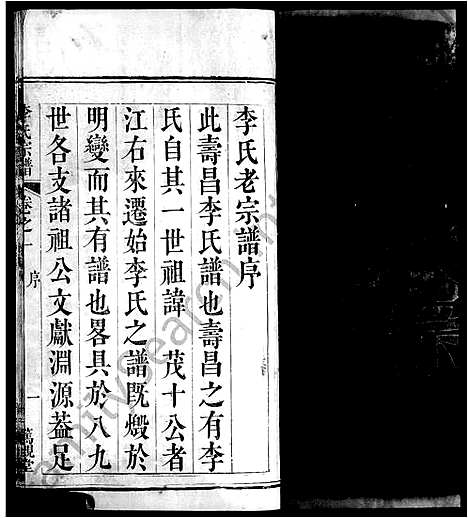 李氏老宗譜序
此壽昌李氏譜也壽昌之有李
氏自其一世祖諱 茂十公者
江右來遷始李氏之譜旣燬於
明變而其有譜也畧具於八九
世各支諸祖公文獻淵源葢足
李氏宗譜 卷之一 序 一